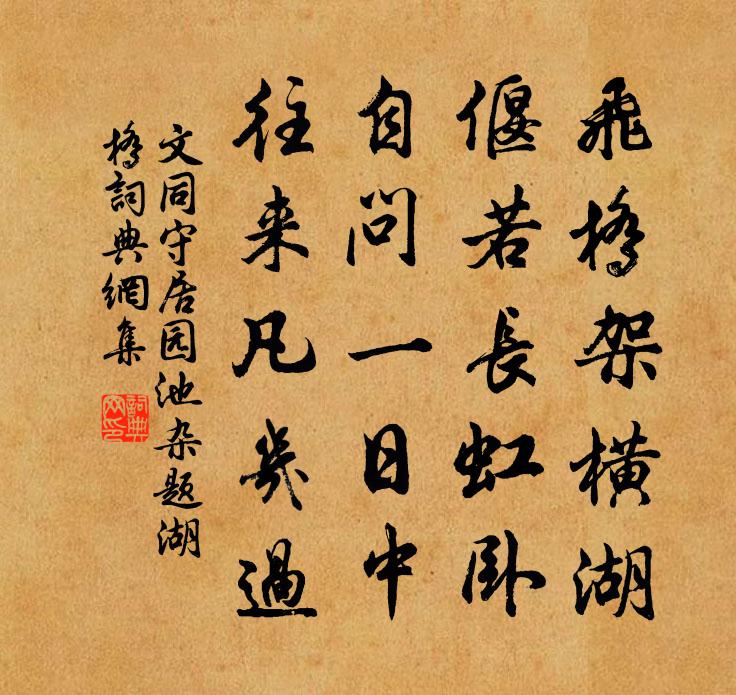 飛橋架橫湖
偃若長虹卧
自問一日中
往来凡幾過
文同守居园池杂题湖
橋詞典網集
詞典网印